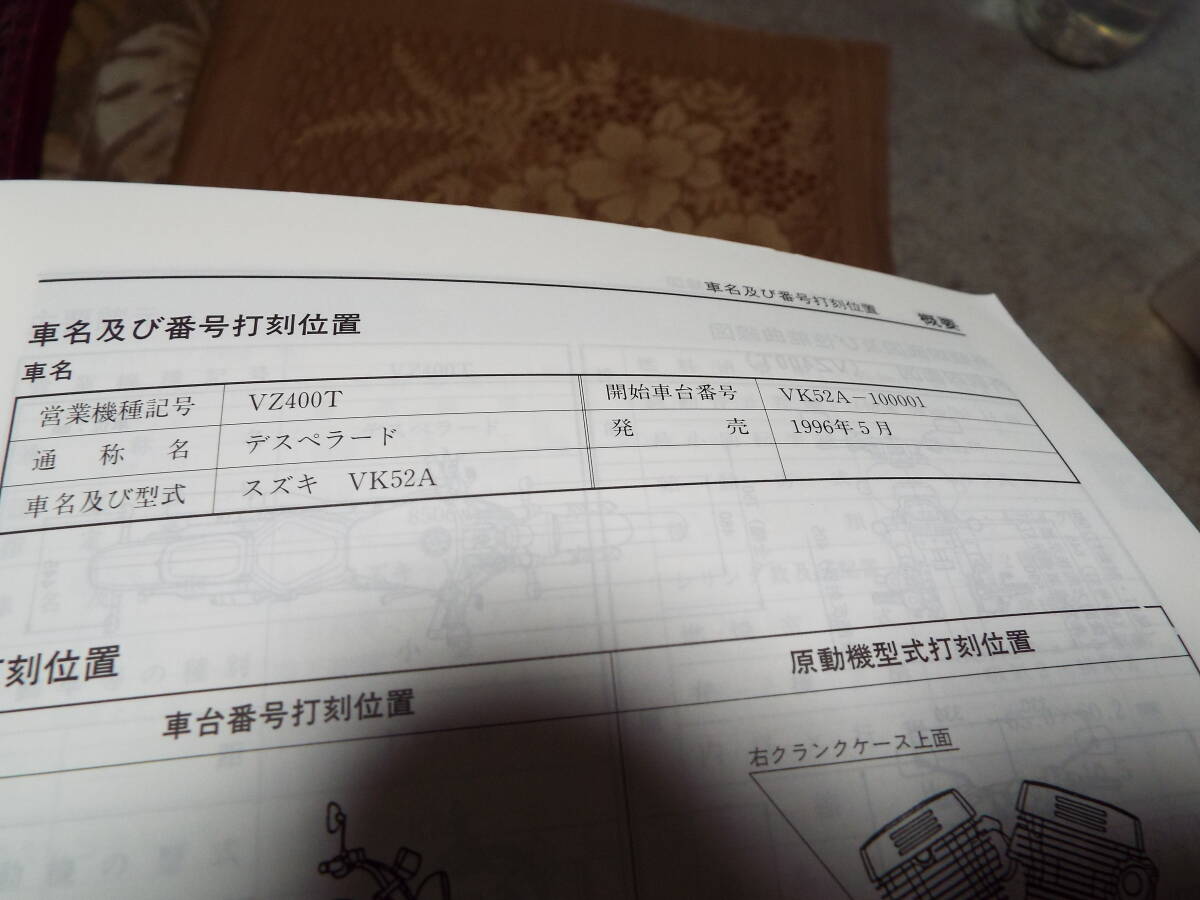 車名及び番号打刻位置 概要
車名及び番号打刻位置
車名
営業機種記号 VZ400T 開始車台番号 VK52A-100001
通称名 デスペラード 発売 1996年5月
車名及び型式 スズキ VK52A
刻位置
車台番号打刻位置 原動機型式打刻位置
右クランクケース上面